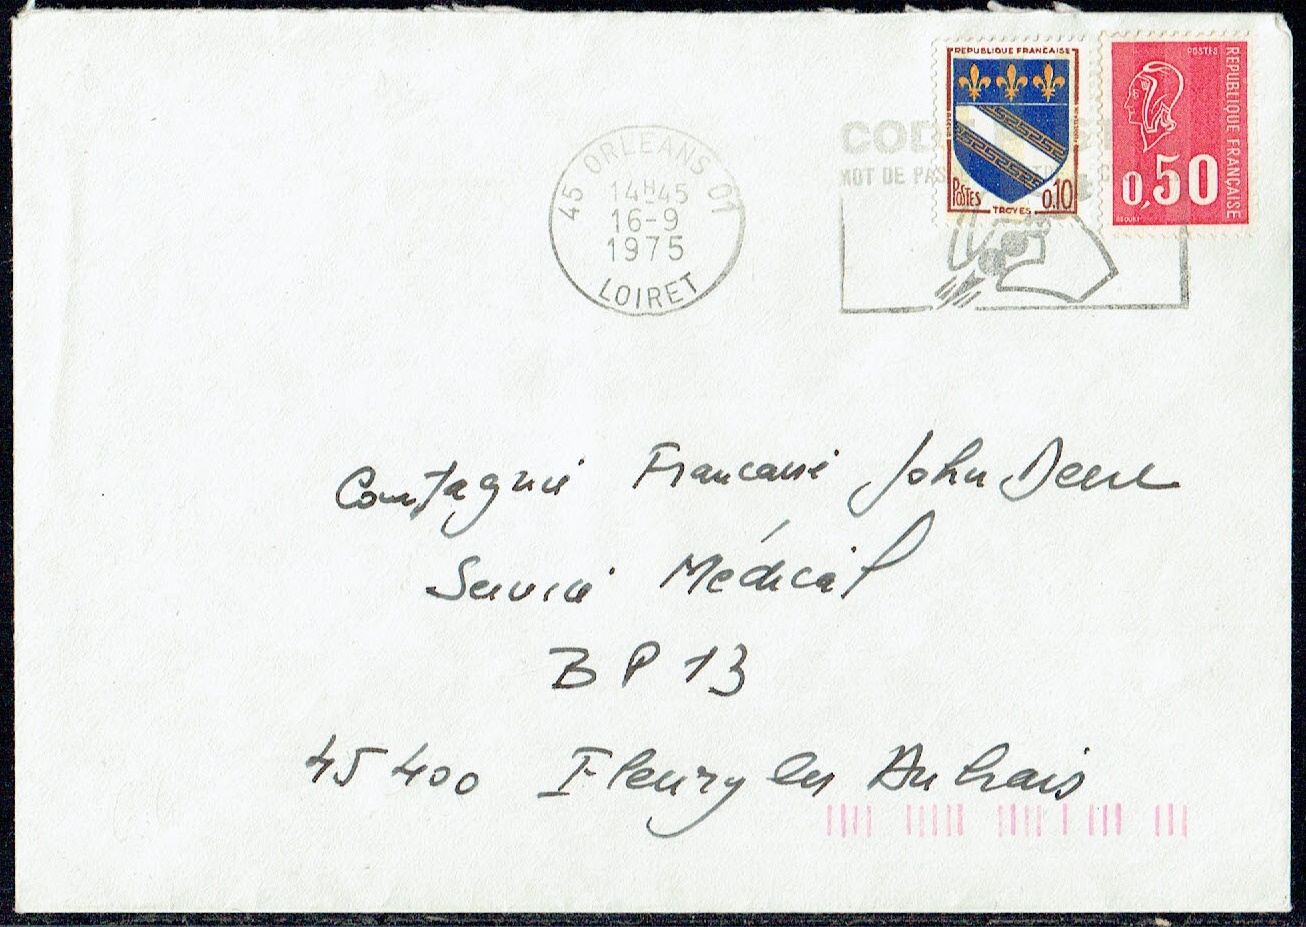 REPUBLIQUE FRANÇAISE
POSTES
0.10
TROYES
POSTES
REPUBLIQUE FRANÇAISE
0,50
BEQUET
CODE
MOT DE PAS
45 ORLEANS 01
14H45
16-9
1975
LOIRET
Compagnie Francaise John Deere
Service Médical
BP 13
45400 Fleury les Aubrais